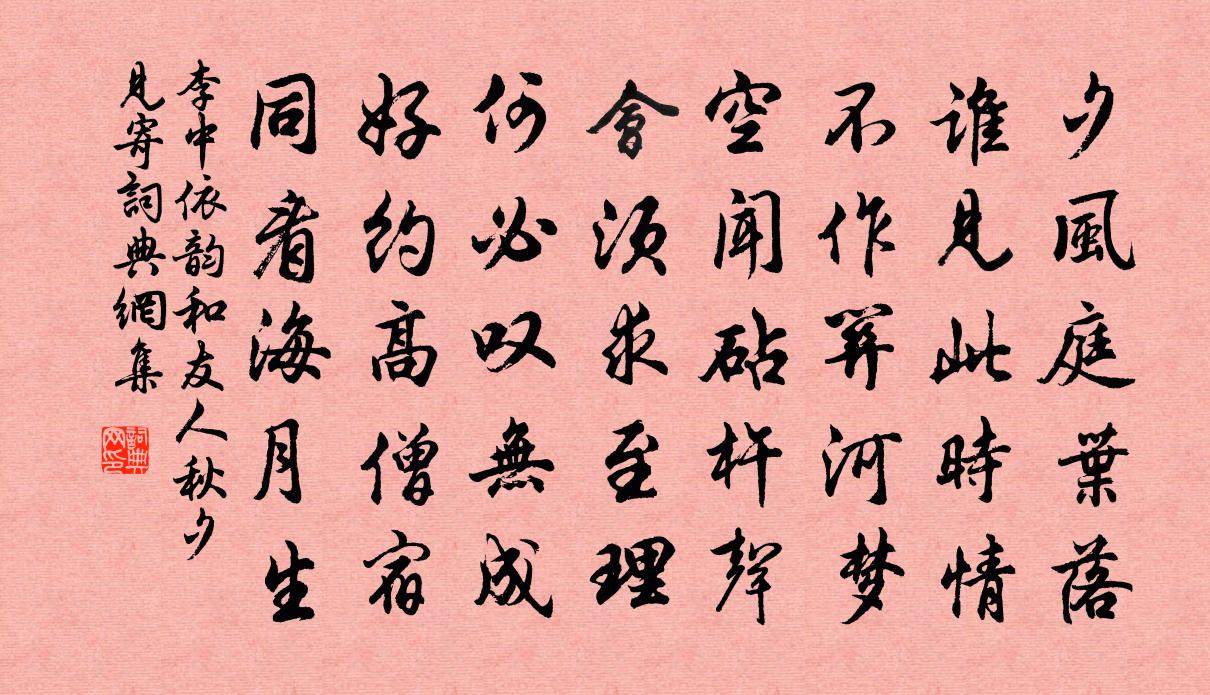 夕風庭葉落
誰見此時情
不作關河梦
空聞砧杵聲
會須求至理
何必叹無成
好約高僧宿
同看海月生
李中依韵和友人秋夕
見寄詞典網集
詞典
网印